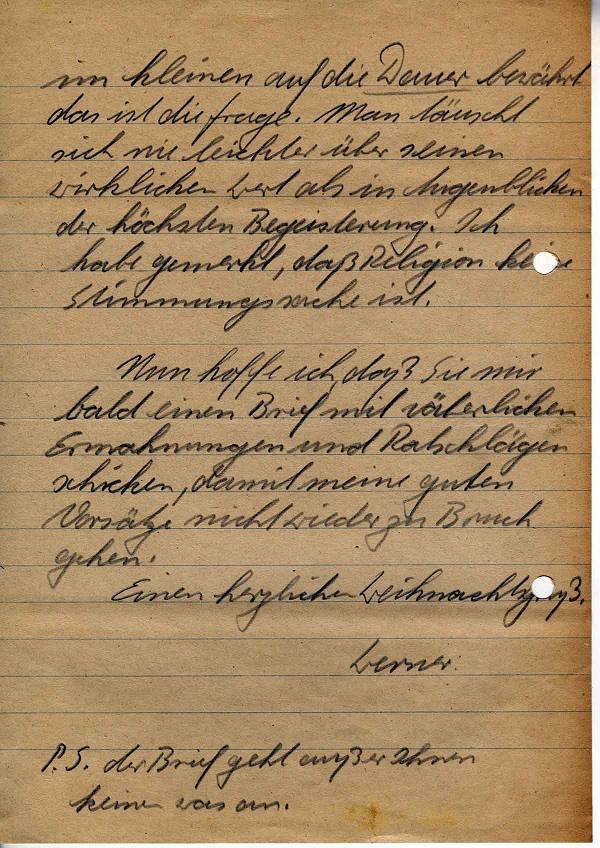 im kleinen auf die Dauer bewährt
das ist die frage. Man täuscht
sich nie leichter über seinen
wirklichen Wert als in Augenblicken
der höchsten Begeisterung. Ich
habe gemerkt, daß Religion keine
Stimmungssache ist.
Nun hoffe ich, daß Sie mir
bald einen Brief mit väterlichen
Ermahnungen und Ratschlägen
schicken, damit meine guten
Vorsätze nicht wieder zu Bruch
gehen.
Einen herzlichen Weihnachtsgruß.
Werner.
P.S. der Brief geht außer Ihnen
keinen was an.